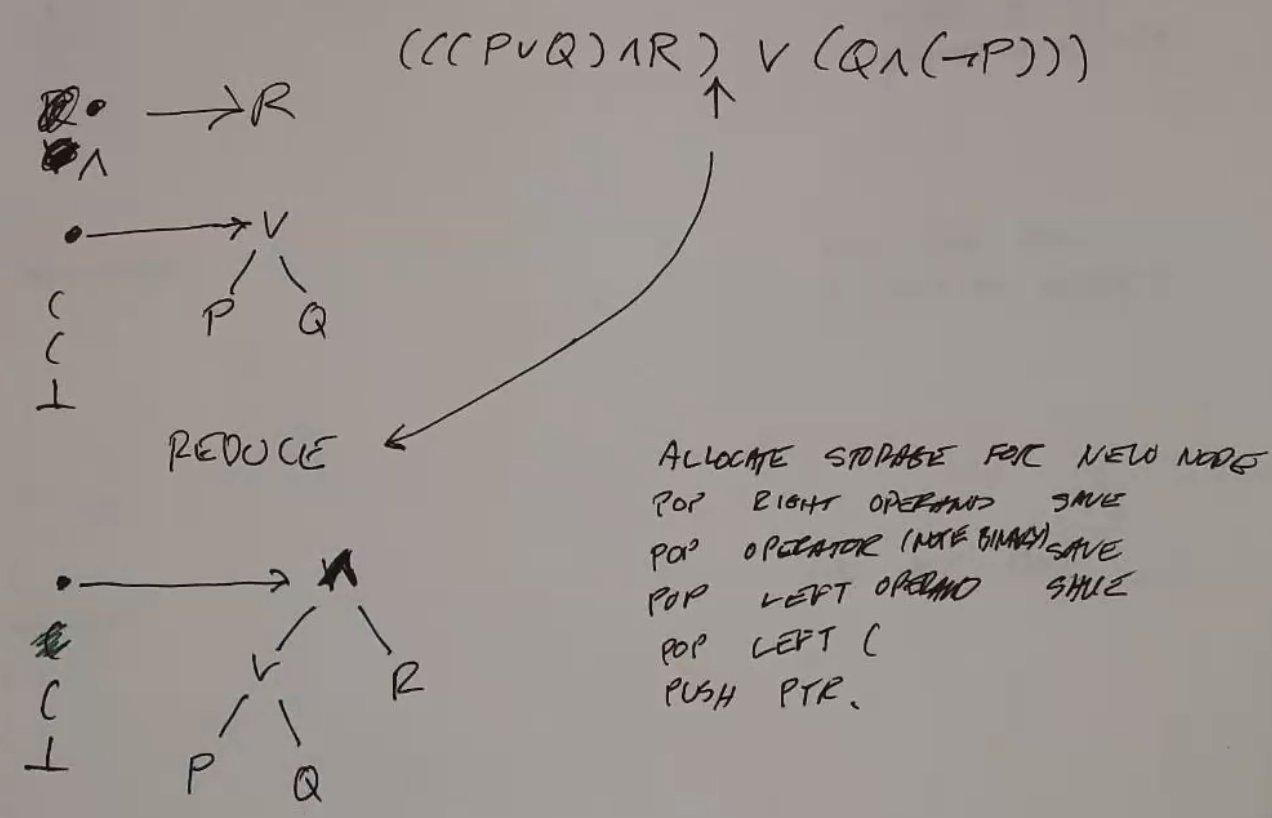 (((P∨Q)∧R) ∨ (Q∧(¬P)))
R
∧
∨
P Q
(
(
⊥
REDUCE
ALLOCATE STORAGE FOR NEW NODE
POP RIGHT OPERAND SAVE
POP OPERATOR (NOTE BINARY) SAVE
POP LEFT OPERAND SAVE
POP LEFT (
PUSH PTR.
∧
∨ R
(
P Q
⊥